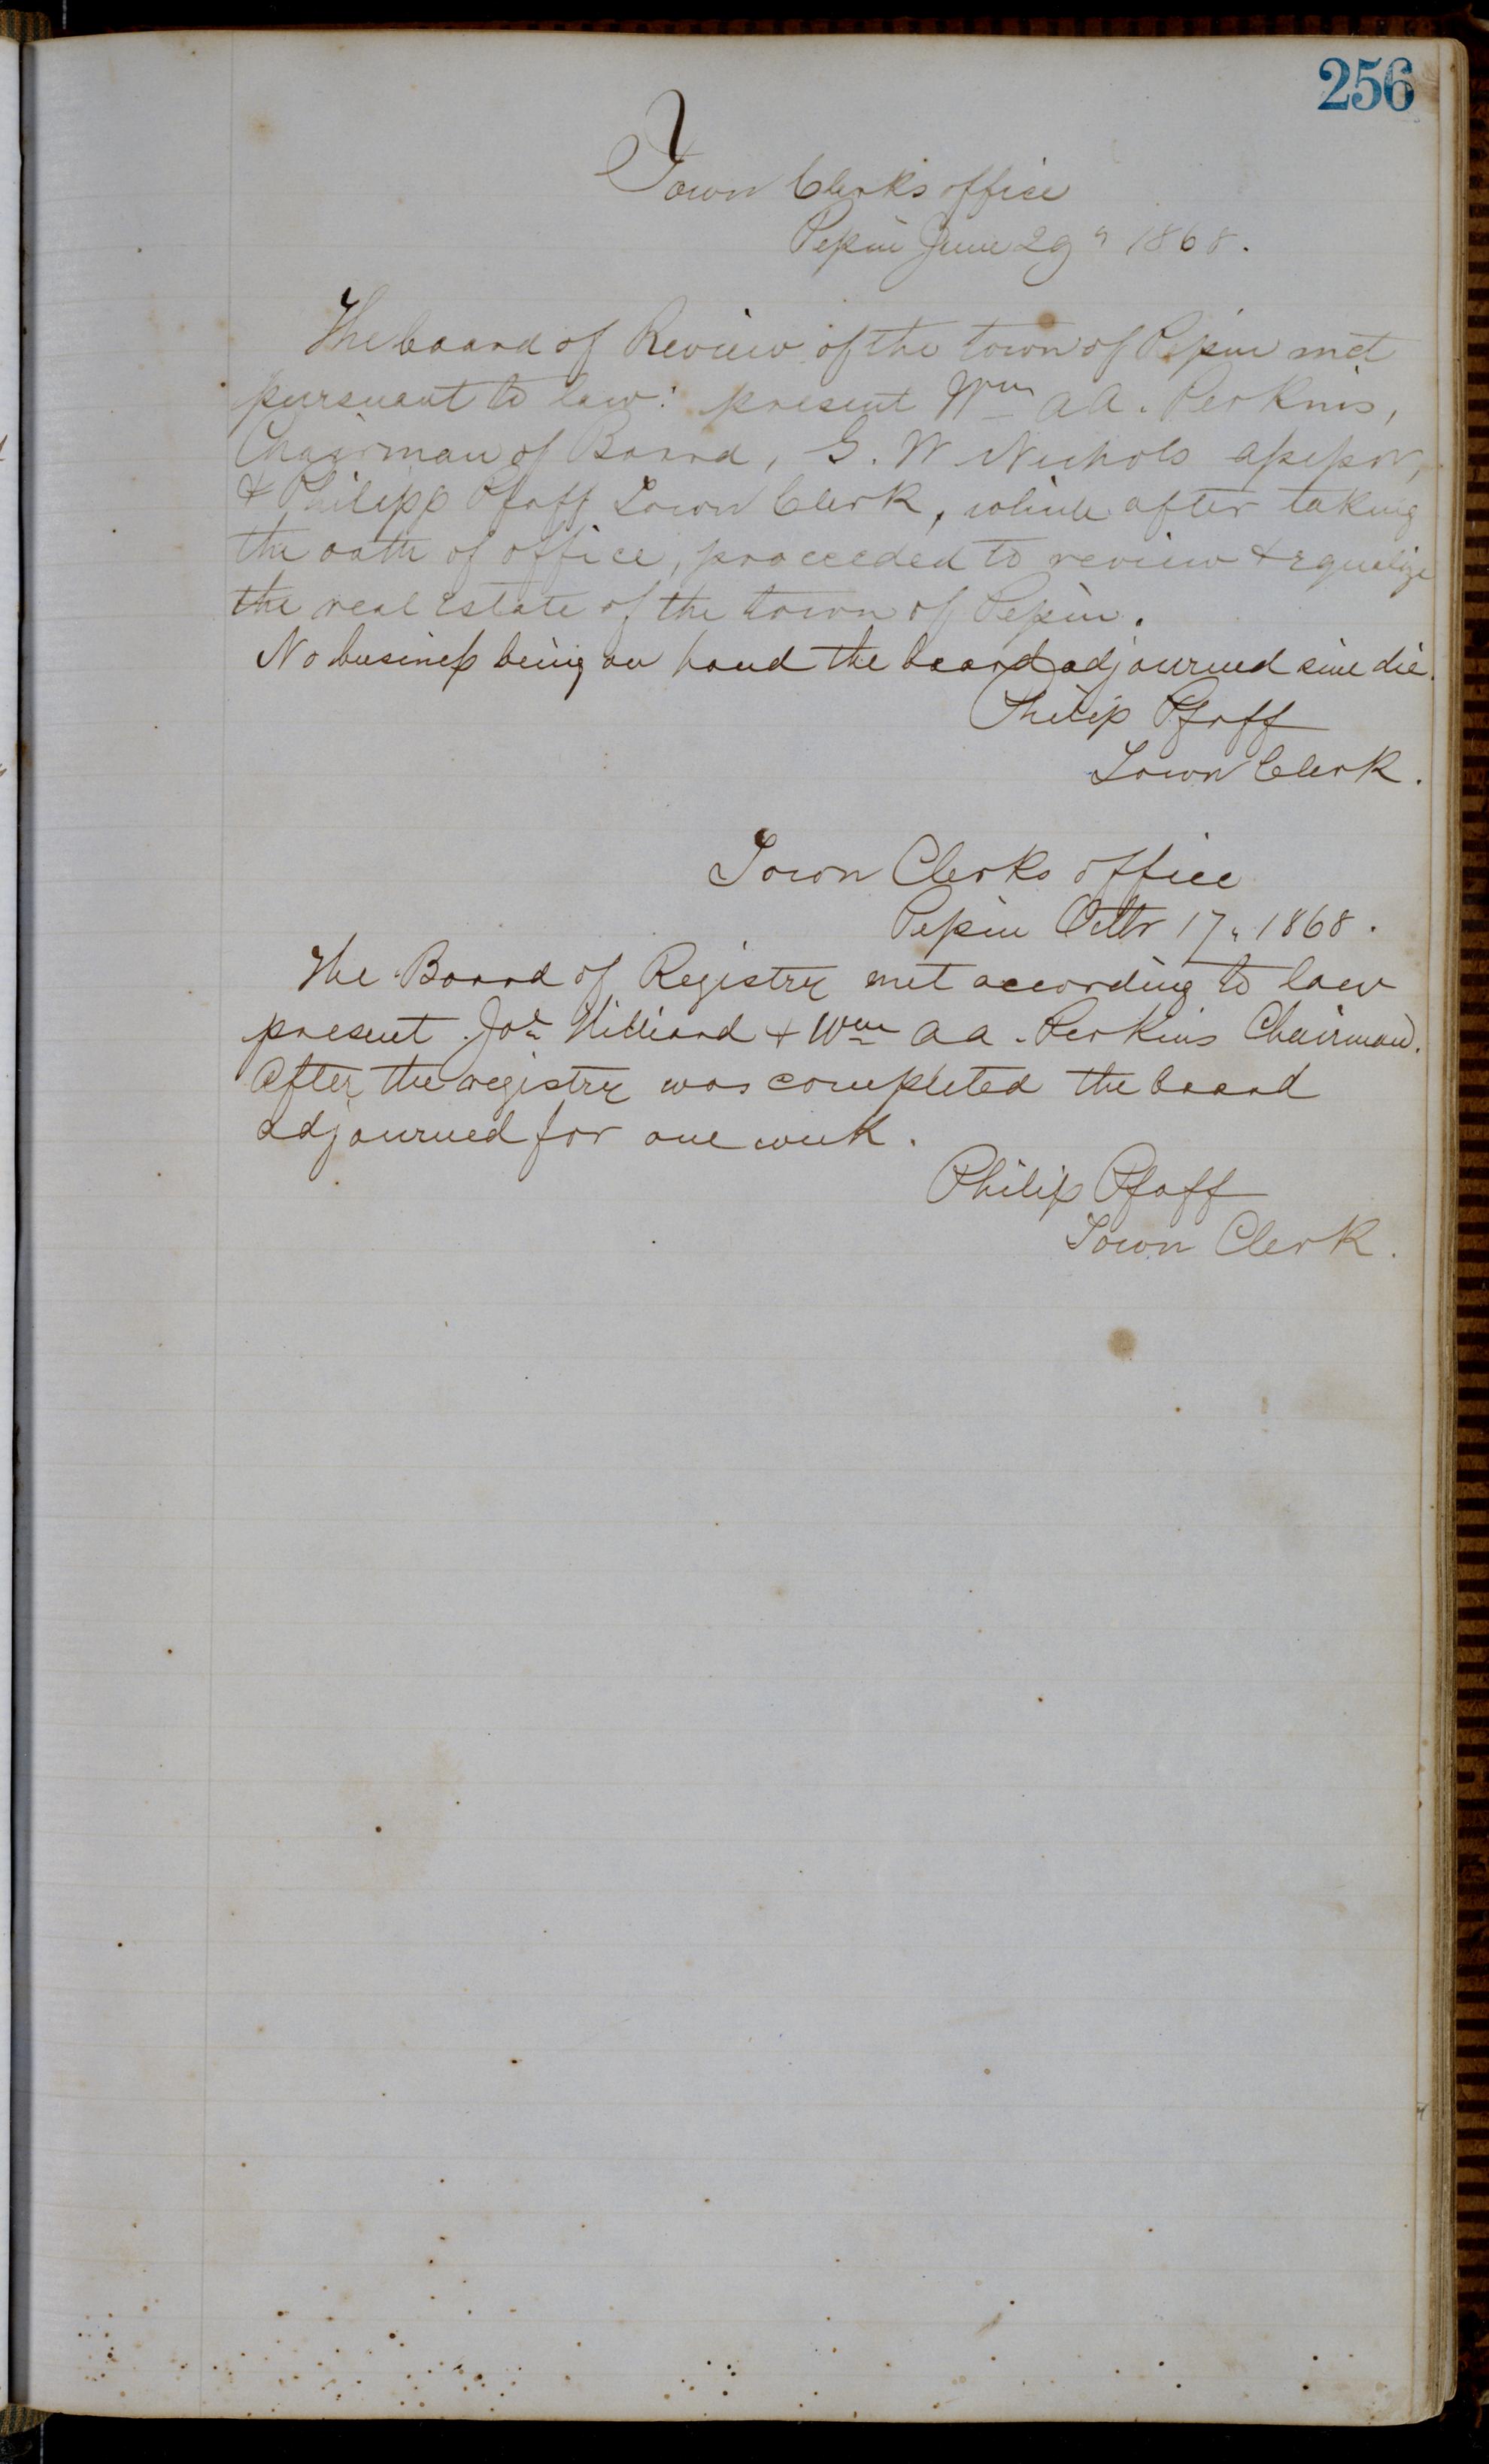 256
Town Clerks office
Pepin June 29" 1868.
The board of Review of the town of Pepin met
pursuant to law: present Wm A A. Perkins,
Chairman of Board, G. W Nichols assessor,
& Philipp Pfaff Town Clerk, after taking
the oath of office, proceeded to review & equalize
the real Estate of the town of Pepin.
No business being on hand the board adjourned sine die.
Philip Pfaff
Town Clerk.
Town Clerks office
Pepin Octbr 17" 1868.
The Board of Registry met according to law
present Jos Hilliard & Wm A A. Perkins Chairman.
After the registry was completed the board
adjourned for one week.
Philip Pfaff
Town Clerk.